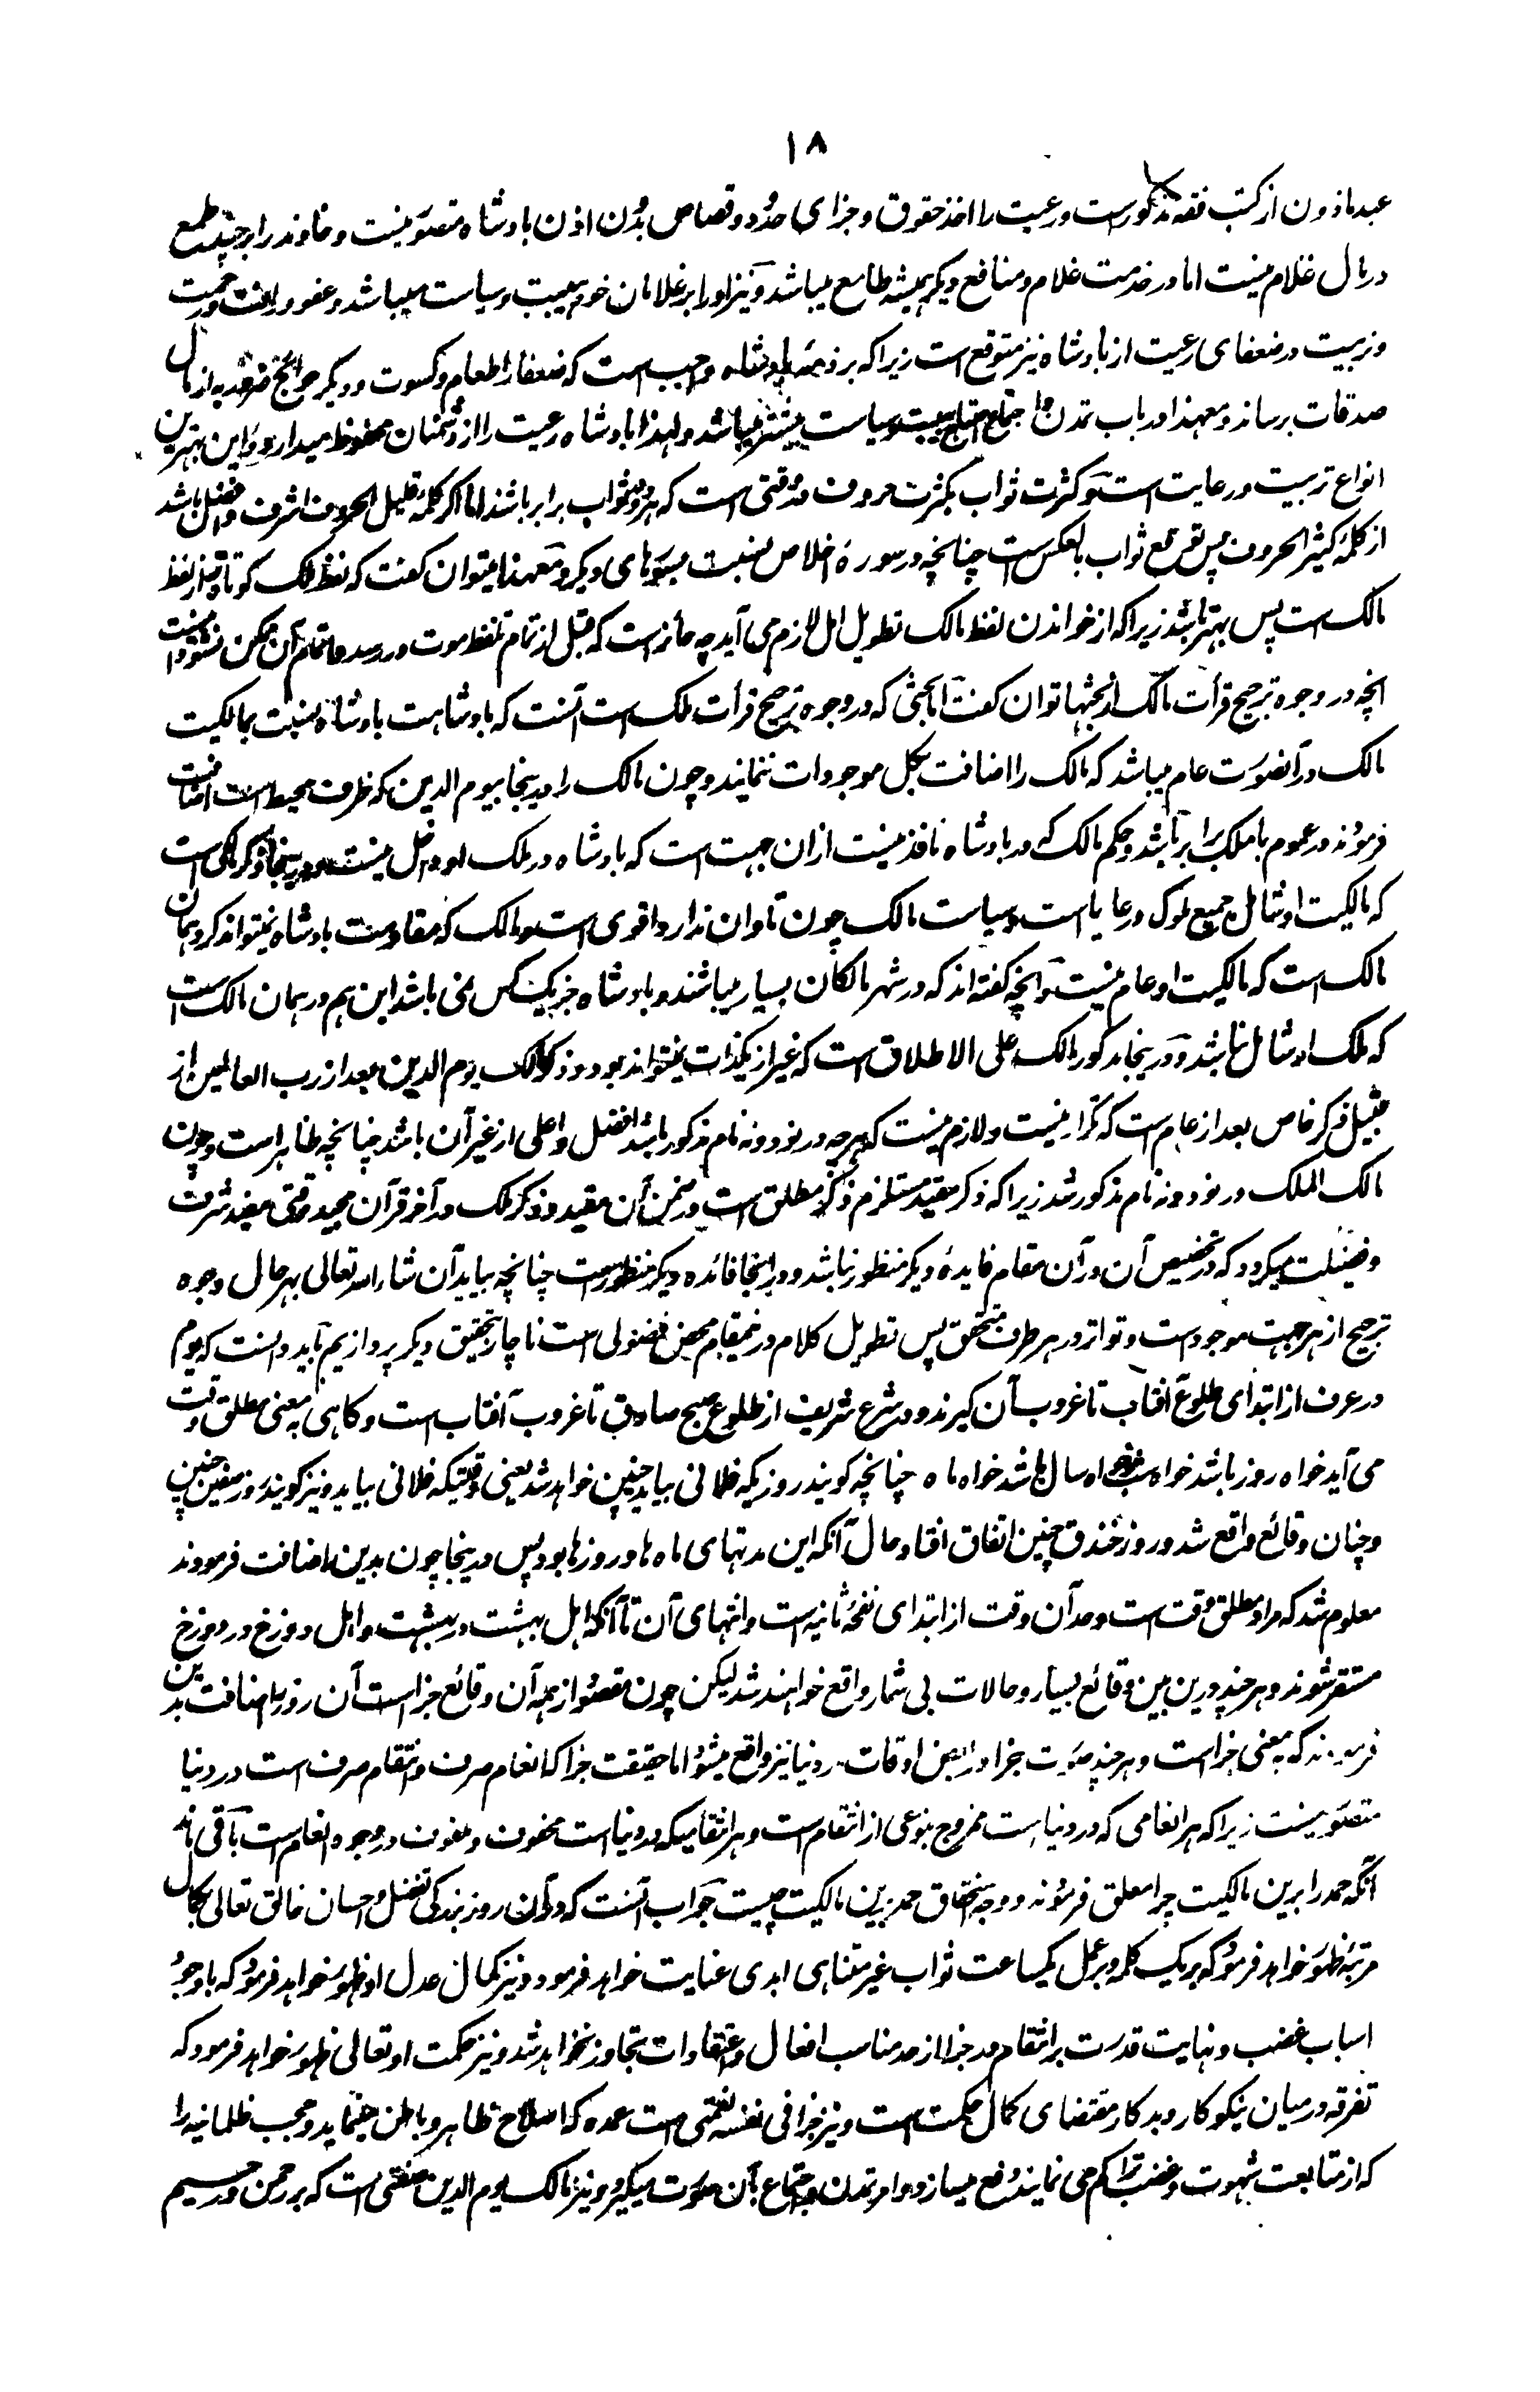 ۱۸
عبد ماذون از کتب فقه مذکور است و رعیت را اخذ حقوق و جزای حدود و قصاص بدون اذن بادشاه متصور نیست و خاوند را هر چند طمع
در مال غلام نیست اما در خدمت غلام و منافع دیگر همیشه طامع میباشد و نیز او را بر غلامان خود هیبت و سیاست میباشد و عفو و رافت و رحمت
و تربیت در ضعفای رعیت از بادشاه نیز متوقع است زیرا که بر ذمه بادشاه واجب است که ضعفا را طعام و کسوت و دیگر حوایج ضروریه از مال
صدقات برساند و معهذا در باب تمدن و اجتماع احتیاج هیبت و سیاست بیشتر میباشد و لهذا بادشاه رعیت را از دشمنان محفوظ میدارد و این بهترین
انواع تربیت و رعایت است و کثرت ثواب بکثرت حروف در وقتی است که هر دو در ثواب برابر باشند اما اگر کلمه قلیل الحروف اشرف و افضل باشد
از کلمه کثیر الحروف پس توقع ثواب بالعکس است چنانچه در سوره اخلاص بنسبت سورهای دیگر و معهذا میتوان گفت که لفظ ملک کوتاه تر از لفظ
مالک است پس بهتر باشد زیرا که از خواندن لفظ مالک تطویل امل لازم می آید چه جائز است که قبل از تمام تلفظ موت در رسد و اتمام آن ممکن نشود و اینست
انچه در وجوه ترجیح قرأت مالک از بحثها توان گفت اما بحثی که در وجوه ترجیح قرأت ملک است آنست که بادشاهت بادشاه بنسبت بمالکیت
مالک در آنصورت عام میباشد که مالک را اضافت بکل موجودات ننمایند و چون مالک را در ینجا بیوم الدین که ظرف محیط است اضافت
فرموده در عموم با ملک برابر باشد و حکم مالک که در بادشاه نافذ نیست از ان جهت است که بادشاه در ملک او داخل نیست و در ینجا ذکر مالکی است
که مالکیت او شامل جمیع ملوک و رعایا است و سیاست مالک چون تاوان ندارد اقوی است و مالک که مقاومت بادشاه نمیتواند کرد همان
مالک است که مالکیت او عام نیست و آنچه گفته اند که در شهر مالکان بسیار میباشند و بادشاه جز یک کس نمی باشد این هم در همان مالک است
که ملک او شامل نباشد و در ینجا مذکور مالک علی الاطلاق است که غیر از یکذات نمیتواند بود و ذکر مالک یوم الدین بعد از رب العالمین از
قبیل ذکر خاص بعد از عام است که تکرار نیست و لازم نیست که هر چه در نود و نه نام مذکور باشد افضل و اعلی از غیر آن باشد چنانچه ظاهر است و چون
مالک الملک در نود و نه نام مذکور شد زیرا که ذکر مقید مستلزم ذکر مطلق است در ضمن آن مقید و ذکر ملک در آخر قرآن مجید وقتی مفید شرف
و فضیلت میگردد که در تخصیص آن در آن مقام فایدهٔ دیگر منظور نباشد و در اینجا فائده دیگر منظور است چنانچه بیاید آن شاء الله تعالی بهر حال وجوه
ترجیح از هر جهت موجود است و تواتر در هر طرف متحقق پس تطویل کلام در ینمقام محض فضولی است ناچار بتحقیق دیگر پردازیم باید دانست که یوم
در عرف از ابتدای طلوع آفتاب تا غروب آن گیرند و در شرع شریف از طلوع صبح صادق تا غروب آفتاب است و گاهی به معنی مطلق وقت
می آید خواه روز باشد خواه شب خواه سال باشد خواه ماه چنانچه گویند روزیکه فلانی بیاید چنین خواهد شد یعنی وقتیکه فلانی بیاید و نیز گویند روز صفین چنین
و چنان وقائع واقع شد و روز خندق چنین اتفاق افتاد حال آنکه این مدتهای ماه ها و روزها بود پس در ینجا چون بدین اضافت فرمودند
معلوم شد که مراد مطلق وقت است و حد آن وقت از ابتدای نفخهٔ ثانیه است و انتهای آن تا آنکه اهل بهشت در بهشت و اهل دوزخ در دوزخ
مستقر شوند و هر چند درین بین وقائع بسیار و حالات بی شمار واقع خواهند شد لیکن چون مقصود از همه آن وقائع جزا است آن روز را اضافت بدین
فرمودند که به معنی جزا است و هر چند صورت جزا در بعض اوقات در دنیا نیز واقع میشود اما حقیقت جزا که انعام صرف و انتقام صرف است در دنیا
متصور نیست زیرا که هر انعامی که در دنیا است ممزوج بنوعی از انتقام است و هر انتقامیکه در دنیا است محفوف و مغوف در وجوه انعام است باقی ماند
آنکه حمد را برین مالکیت چرا معلق فرموده و وجه استحقاق حمد برین مالکیت چیست جواب آنست که در آن روز بندگی تفضل و احسان خالق تعالی بکمال
مرتبه ظهور خواهد فرمود که بر یک کلمه و بر عمل یکساعت ثواب غیر متناهی ابدی عنایت خواهد فرمود و نیز کمال عدل او ظهور خواهد فرمود که باوجود
اسباب غضب و نهایت قدرت بر انتقام در جزا از حد مناسب افعال و اعتقادات تجاوز نخواهد شد و نیز حکمت او تعالی ظهور خواهد فرمود که
تفرقه در میان نیکوکار و بدکار مقتضای کمال حکمت است و نیز جزا فی نفسه نعمتی است عمده که اصلاح ظاهر و باطن مینماید و حجب ظلمانیه را
که از متابعت شهوت و غضب تراکم می نمایند رفع میسازد و امر تمدن و اجتماع بآن صورت میگیرد و نیز مالک یوم الدین صفتی است که بر رحمن و رحیم